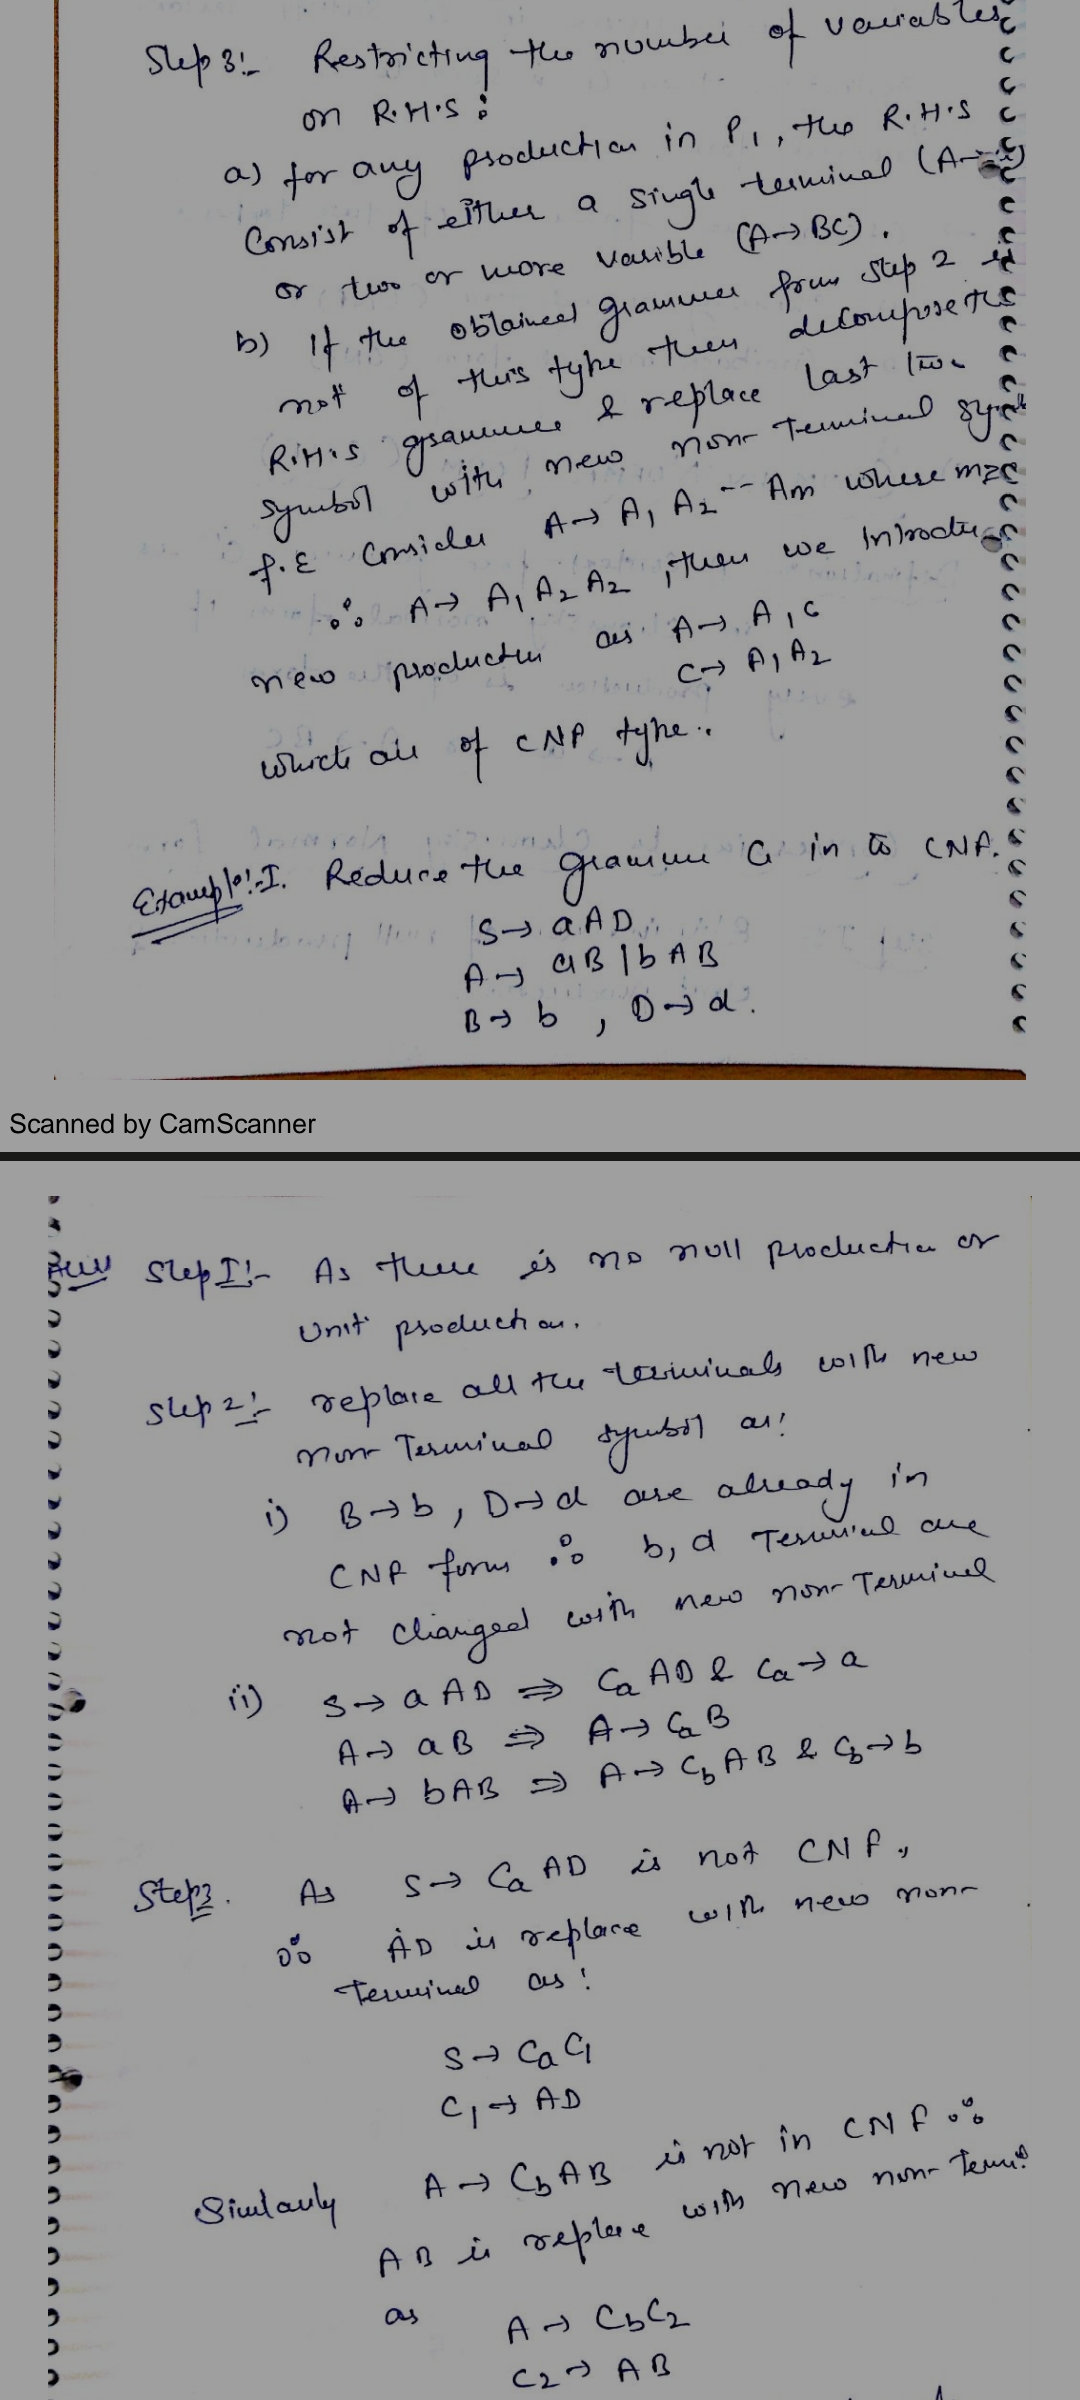 Step 3:- Restricting the number of variables
on R.H.S :
a) for any production in P1, the R.H.S
Consist of either a single terminal (A→
or two or more varible (A→BC).
b) If the obtained grammer from step 2 is
not of this type then decompose the
R.H.S grammer & replace last two
symbol with new non-Terminal
f.E Consider A→ A1 A2 -- Am where m≥
∴ A→ A1 A2 A2 , then we Introdu
new production as A→ A1 C
C→ A1 A2
which are of CNF type..
Example:-I. Reduce the grammer G in to CNF.
S→ aAD
A→ aB | bAB
B→ b , D→d.
Scanned by CamScanner
Step I:- As there is no null production or
Unit production.
Step 2:- replace all the terminals with new
non-Terminal symbol as:
i) B→b, D→d are already in
CNF form ∴ b, d Terminal are
not changed with new non-Terminal
ii) S→ aAD ⇒ CaAD & Ca→a
A→ aB ⇒ A→ CaB
A→ bAB ⇒ A→ CbAB & Cb→b
Step3. As S→ CaAD is not CNF,
∴ AD is replace with new non-
Terminal as:
S→ CaC1
C1→ AD
Similarly A→ CbAB is not in CNF ∴
AB is replace with new non-
as A→ CbC2
C2→ AB